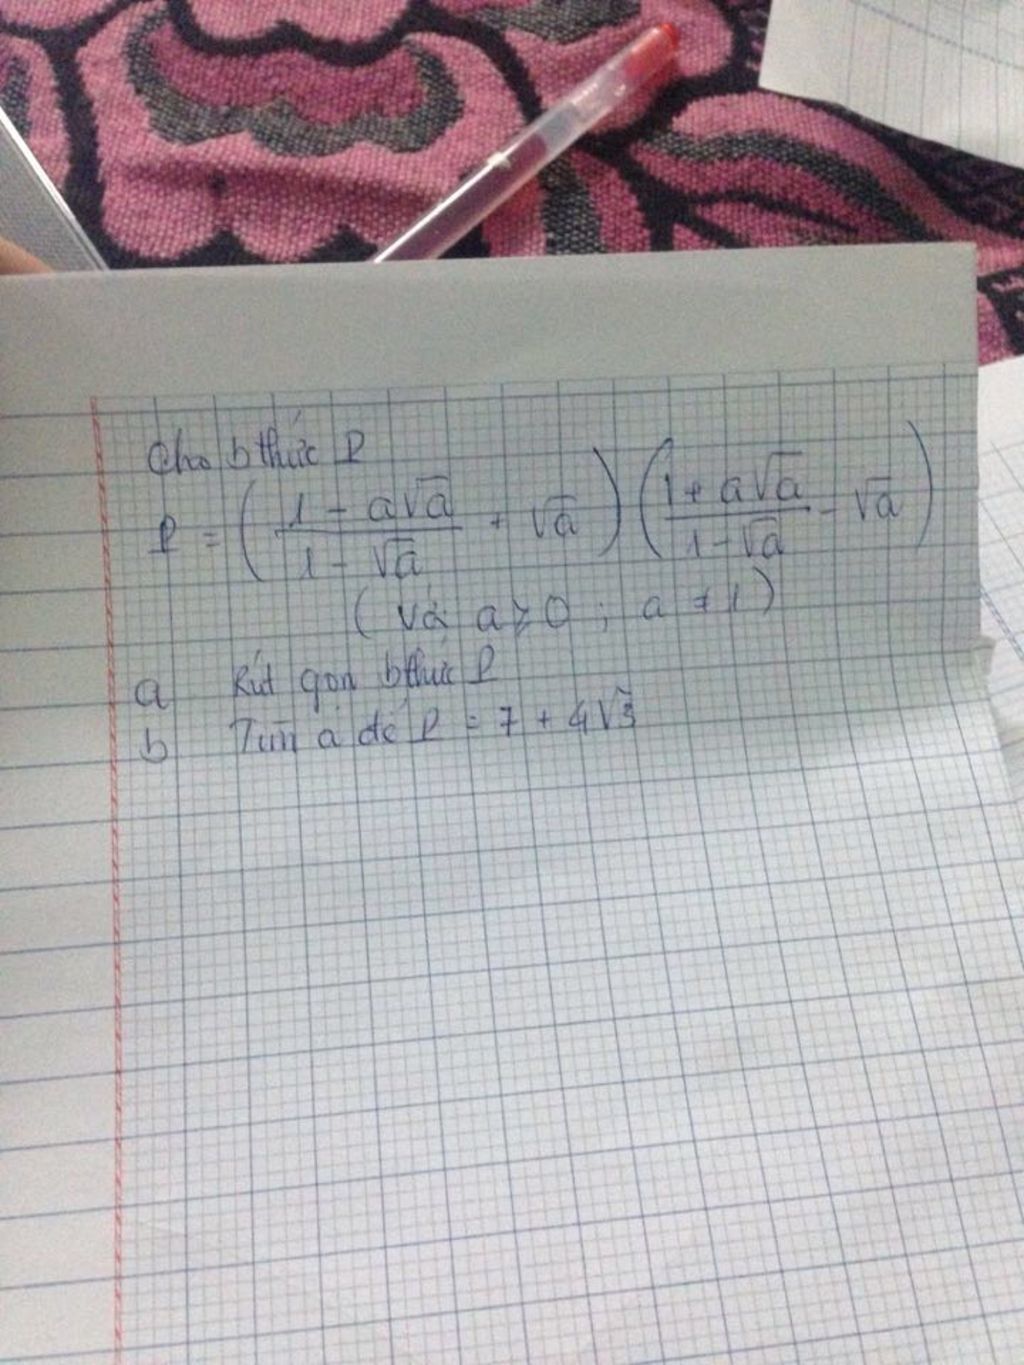 Cho b thức P
P = ( \frac{1 - a√a}{1 - √a} + √a ) ( \frac{1 + a√a}{1 - √a} - √a )
( Với a ≥ 0 ; a ≠ 1 )
a Rút gọn b thức P
b Tìm a để P = 7 + 4√3